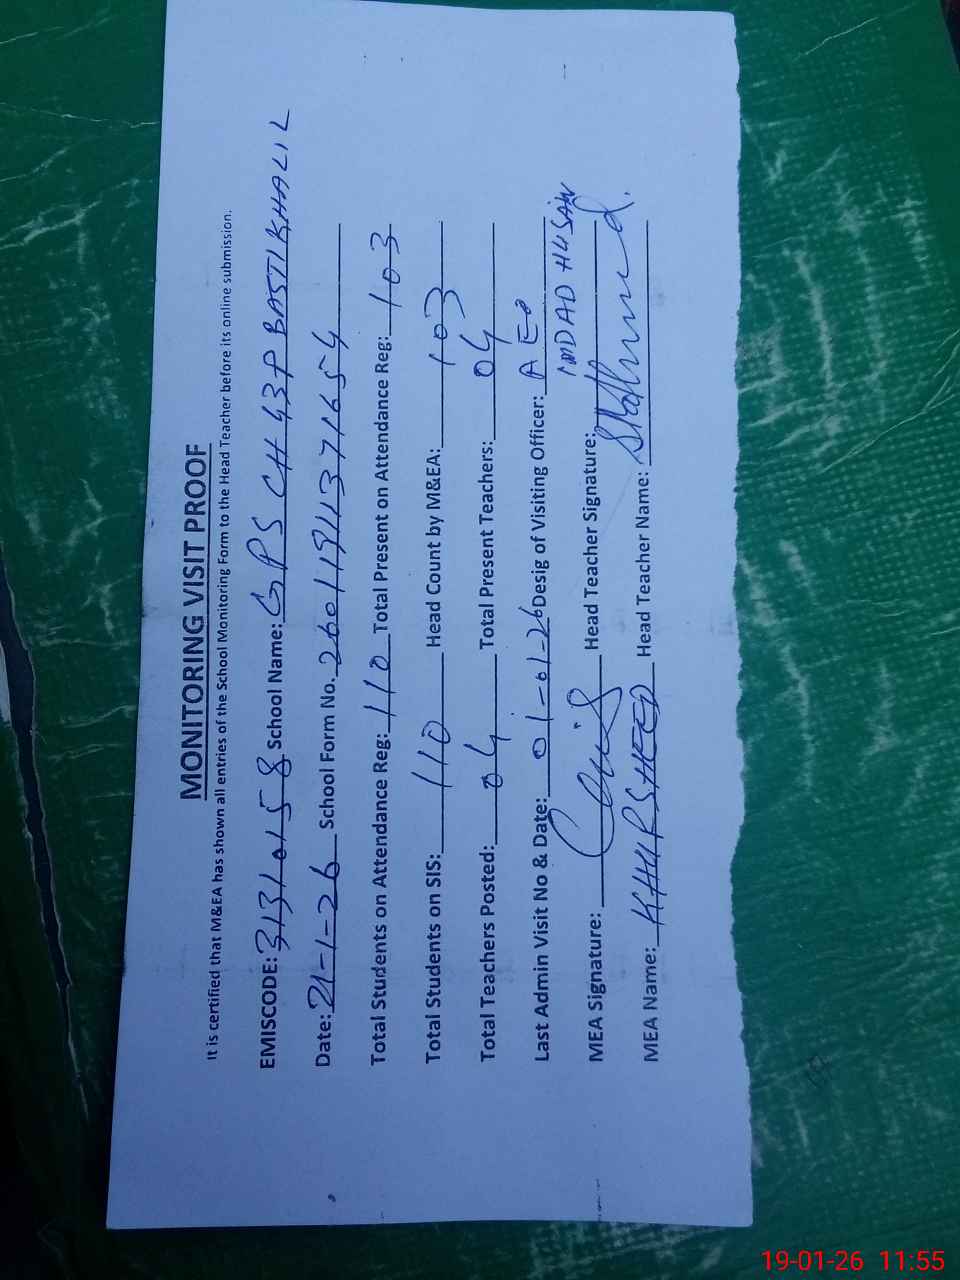 MONITORING VISIT PROOF
It is certified that M&EA has shown all entries of the School Monitoring Form to the Head Teacher before its online submission.
EMISCODE: 31310158 School Name: GPS CH 43P BASTI KHALIL
Date: 21-1-26 School Form No. 26011911371654
Total Students on Attendance Reg: 110 Total Present on Attendance Reg: 103
Total Students on SIS: 110 Head Count by M&EA: 103
Total Teachers Posted: 04 Total Present Teachers: 04
Last Admin Visit No & Date: 01-01-26 Desig of Visiting Officer: AEO
MEA Signature: Head Teacher Signature: IMDAD HUSAIN
MEA Name: KHURSHEED Head Teacher Name:
19-01-26 11:55